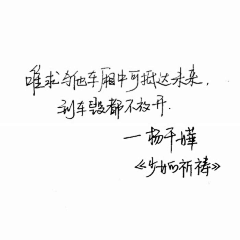 唯求与他车厢中可抵达未来，
到车毁都不放开.
—杨千嬅
《少女的祈祷》